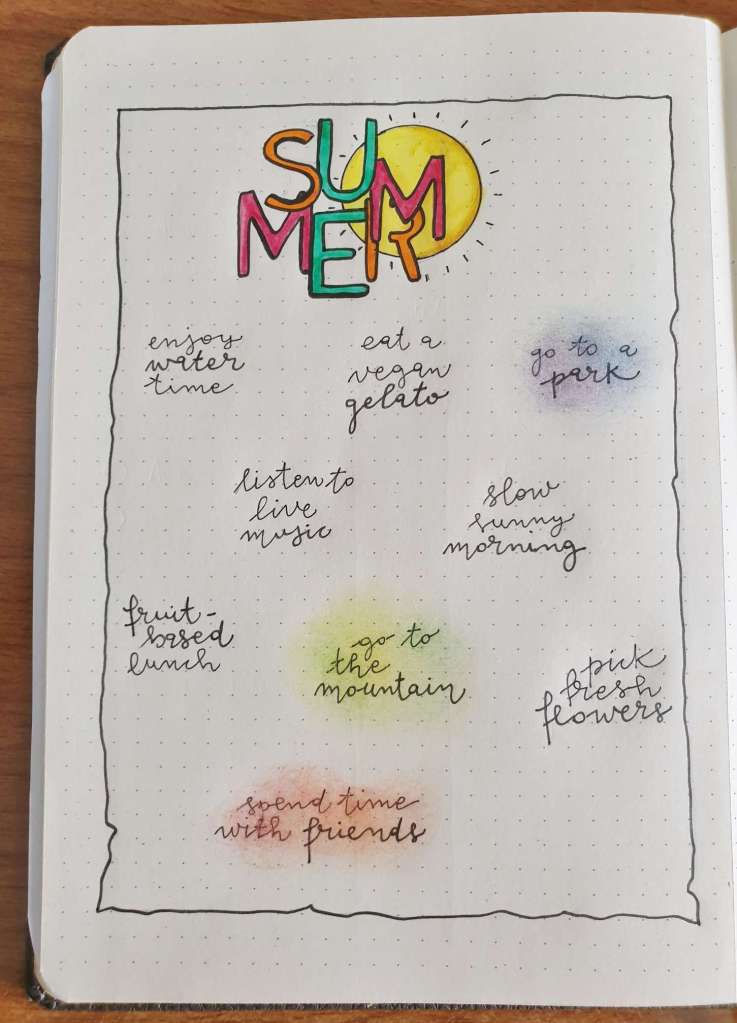 SUM
MER
enjoy
water
time
eat a
vegan
gelato
go to a
park
listen to
live
music
slow
sunny
morning
fruit-
based
lunch
go to
the
mountain
pick
fresh
flowers
spend time
with friends